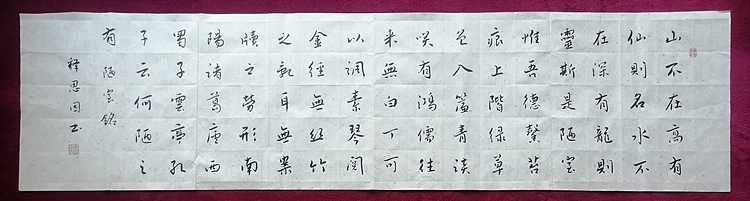 山不在高有
仙則名水不
在深有龍則
靈斯是陋室
惟吾德馨苔
痕上階绿草
色入簾青談
咲有鴻儒往
来無白丁可
以调素琴閱
金經無丝竹
之亂耳無案
牘之勞形南
陽诸葛廬西
蜀子雲亭孔
子云何陋之
有 陋室銘
释思书